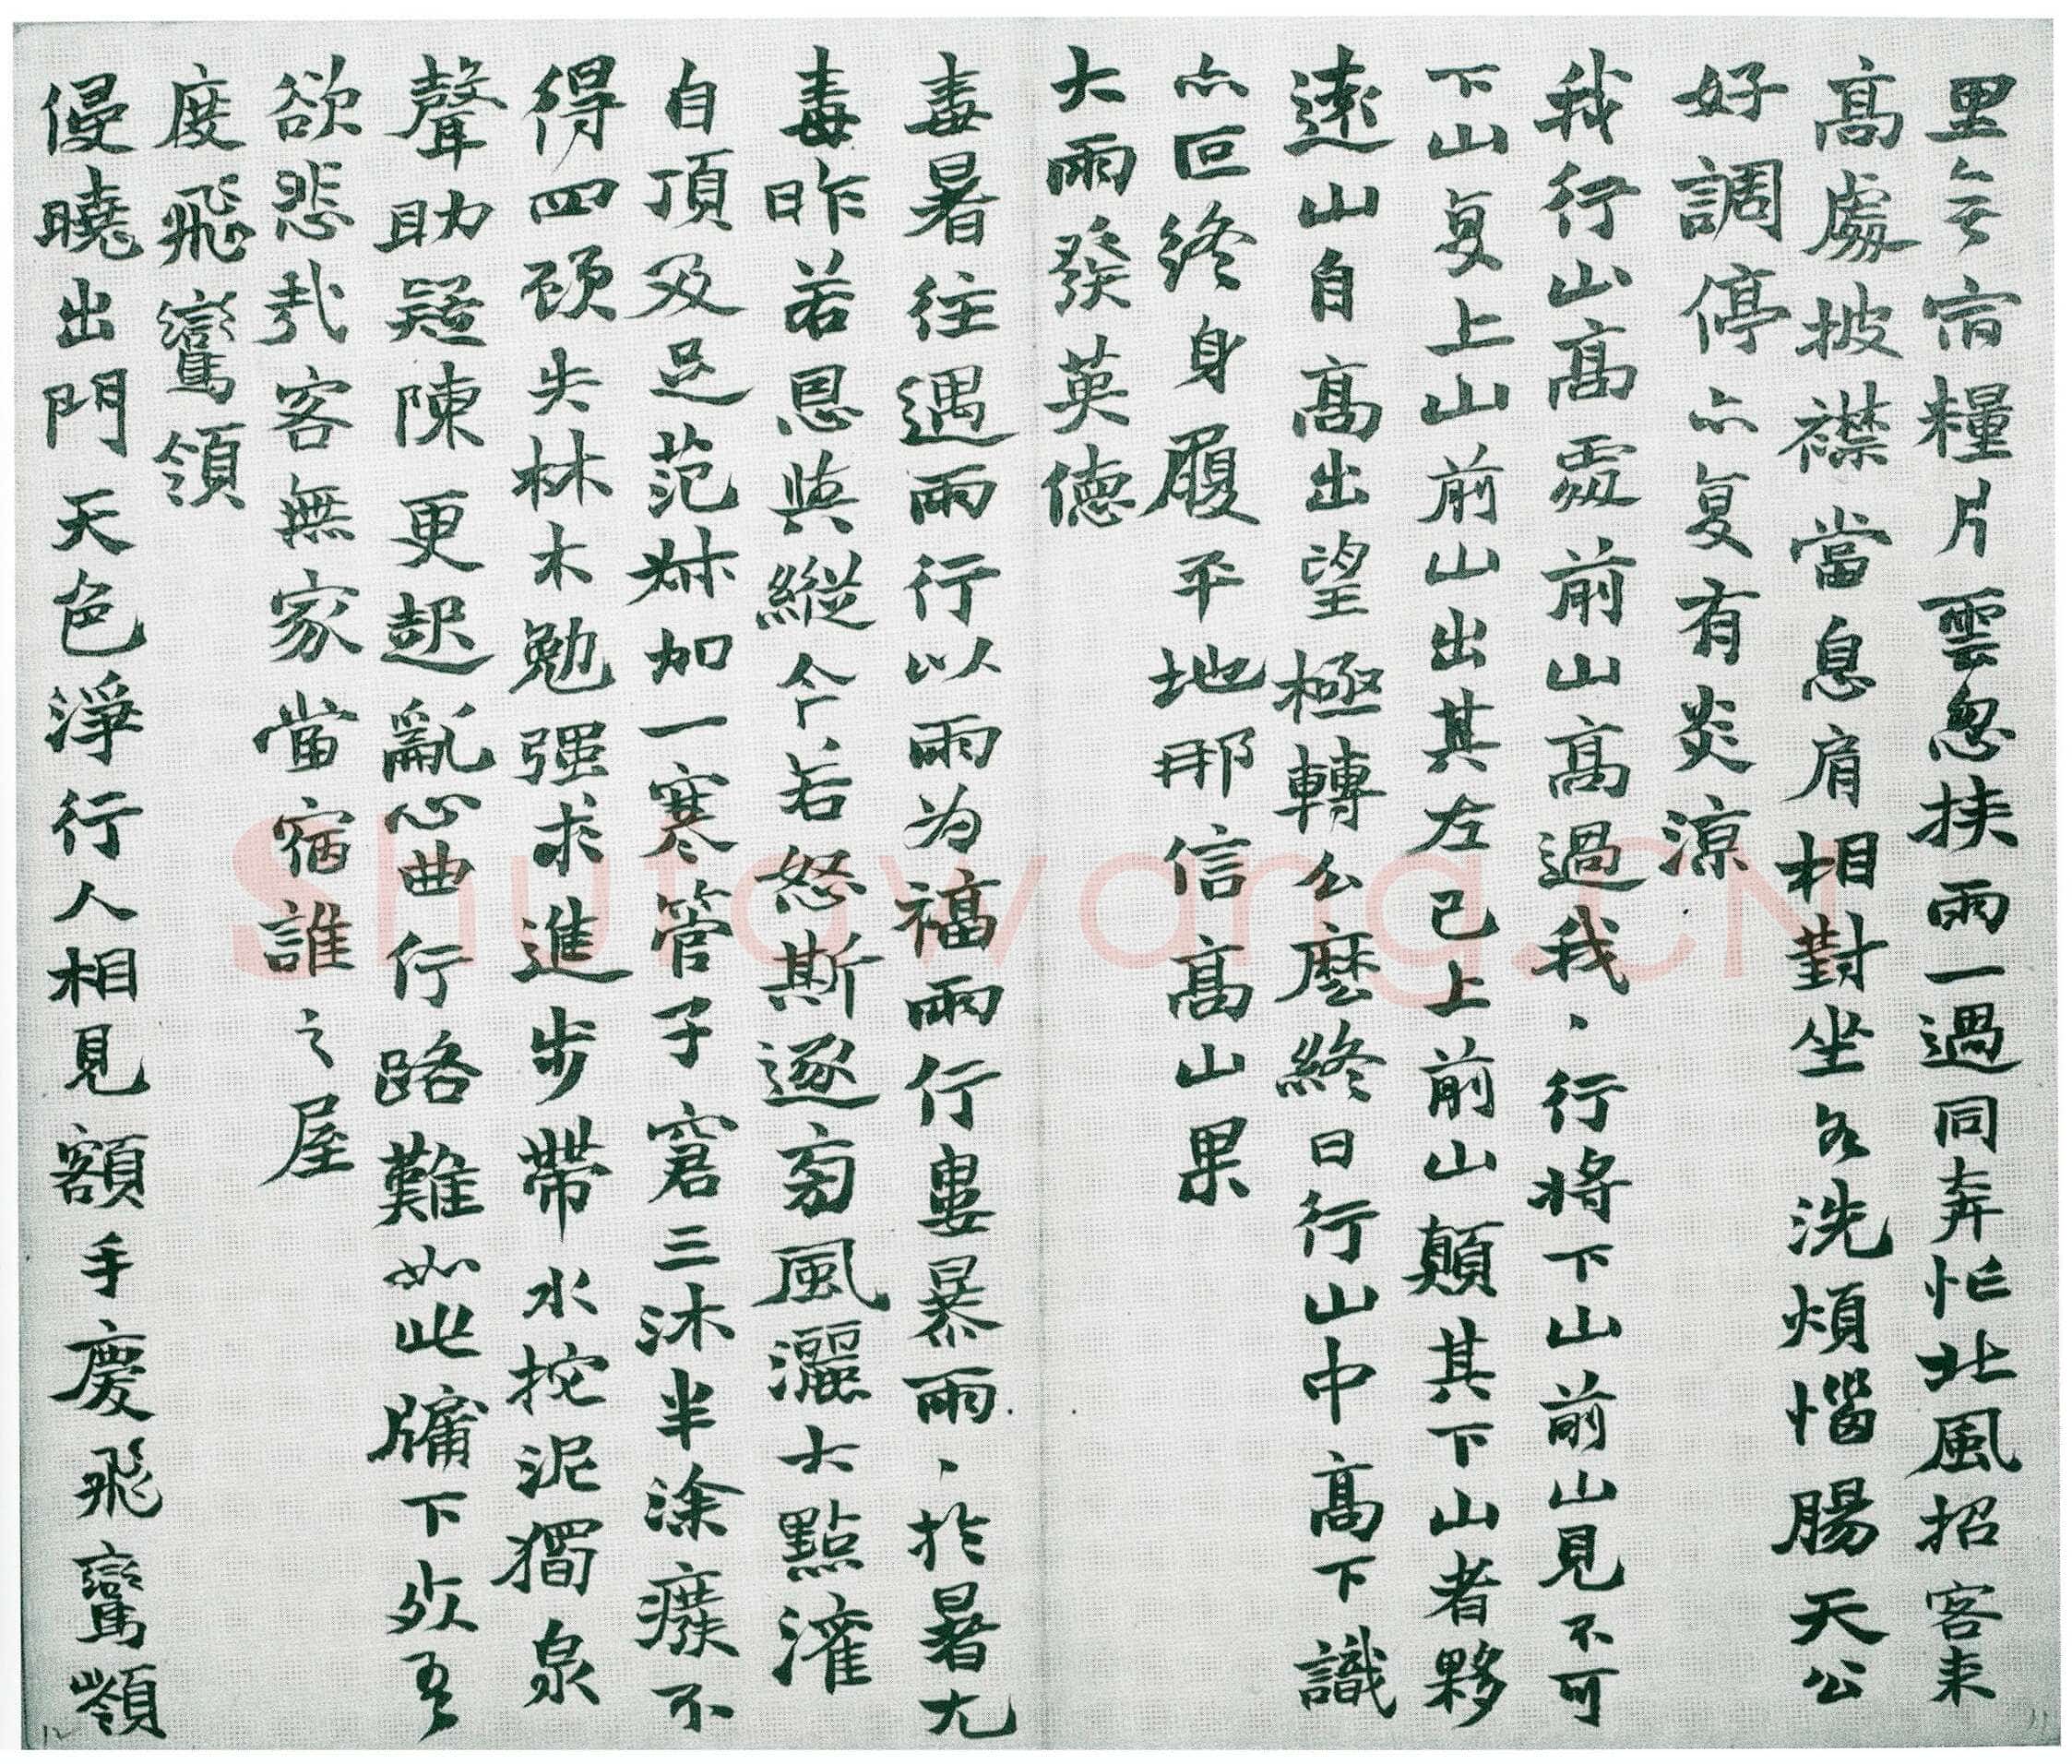 里無宿糧片雲忽挾雨一過同奔忙北風招客來
高處披襟當息肩相對坐各洗煩惱腸天公
好調停亦复有炎涼
我行山高處前山高過我、行將下山前山見不可
下山复上山前山出其左已上前山顛其下山者夥
遠山自高出望極轉么麼終日行山中高下識
亦叵終身履平地那信高山果
大雨發英德
毒暑往遇雨行以雨为福雨行婁暴雨、於暑尤
毒昨若恩與縱今若怒斯逐芻風灑大點灌
自頂及足范妹加一寒管子窘三沐半涂癈不
得四顾失林木勉强求進步帶水挖泥獨泉
聲助疑陳更起亂心曲行路難如此牖下歿吾
欲悲哉客無家當宿誰之屋
度飛鸞領
侵曉出門天色淨行人相見額手慶飛鸞嶺
Shutowang.CN